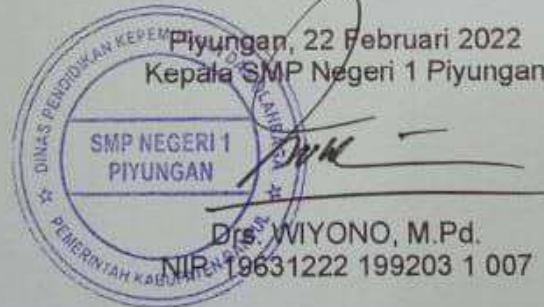 Piyungan, 22 Februari 2022
Kepala SMP Negeri 1 Piyungan
DINAS PENDIDIKAN KEPEMUDAAN DAN OLAHRAGA
SMP NEGERI 1
PIYUNGAN
PEMERINTAH KABUPATEN BANTUL
Drs. WIYONO, M.Pd.
NIP. 19631222 199203 1 007